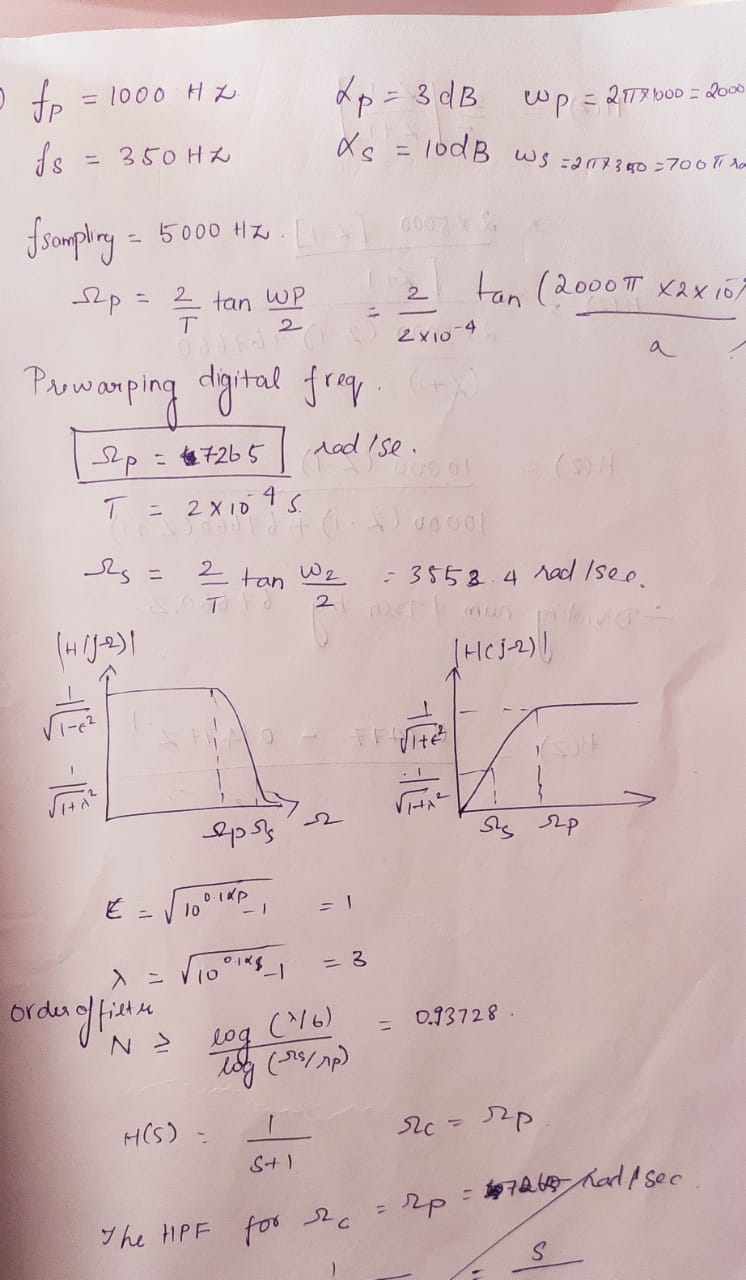 fp = 1000 Hz αp = 3 dB ωp = 2π×1000 = 2000
fs = 350 Hz αs = 10dB ωs = 2π×350 = 700π
fsampling = 5000 Hz.
Ωp = 2/T tan ωp/2 = 2/(2×10⁻⁴) tan (2000π × 2×10
Prewarping digital freq.
Ωp = 7265 rad/se.
T = 2×10⁻⁴ s.
Ωs = 2/T tan ω2/2 = 3553.4 rad/sec.
|H(jΩ)| |H(jΩ)|
1/√(1-ε²) 1/√(1+ε²)
1/√(1+λ²) 1/√(1+λ²)
Ωp Ωs Ω Ωs Ωp
ε = √(10^0.1αp - 1) = 1
λ = √(10^0.1αs - 1) = 3
order of filter
N ≥ log (λ/6)/log (Ωs/Ωp) = 0.93728.
H(s) = 1/(s+1) Ωc = Ωp.
The HPF for Ωc = Ωp = 7265 rad/sec.
1 = s